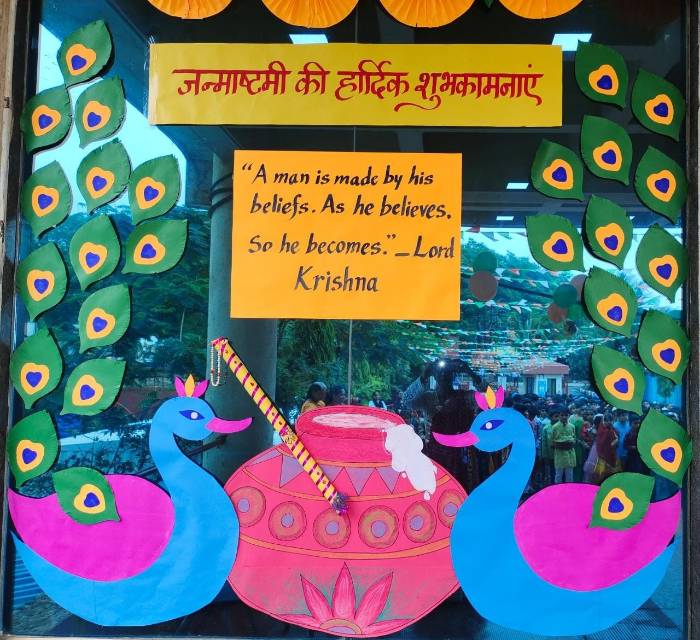 जन्माष्टमी की हार्दिक शुभकामनाएं
“A man is made by his
beliefs. As he believes.
So he becomes.”_Lord
Krishna